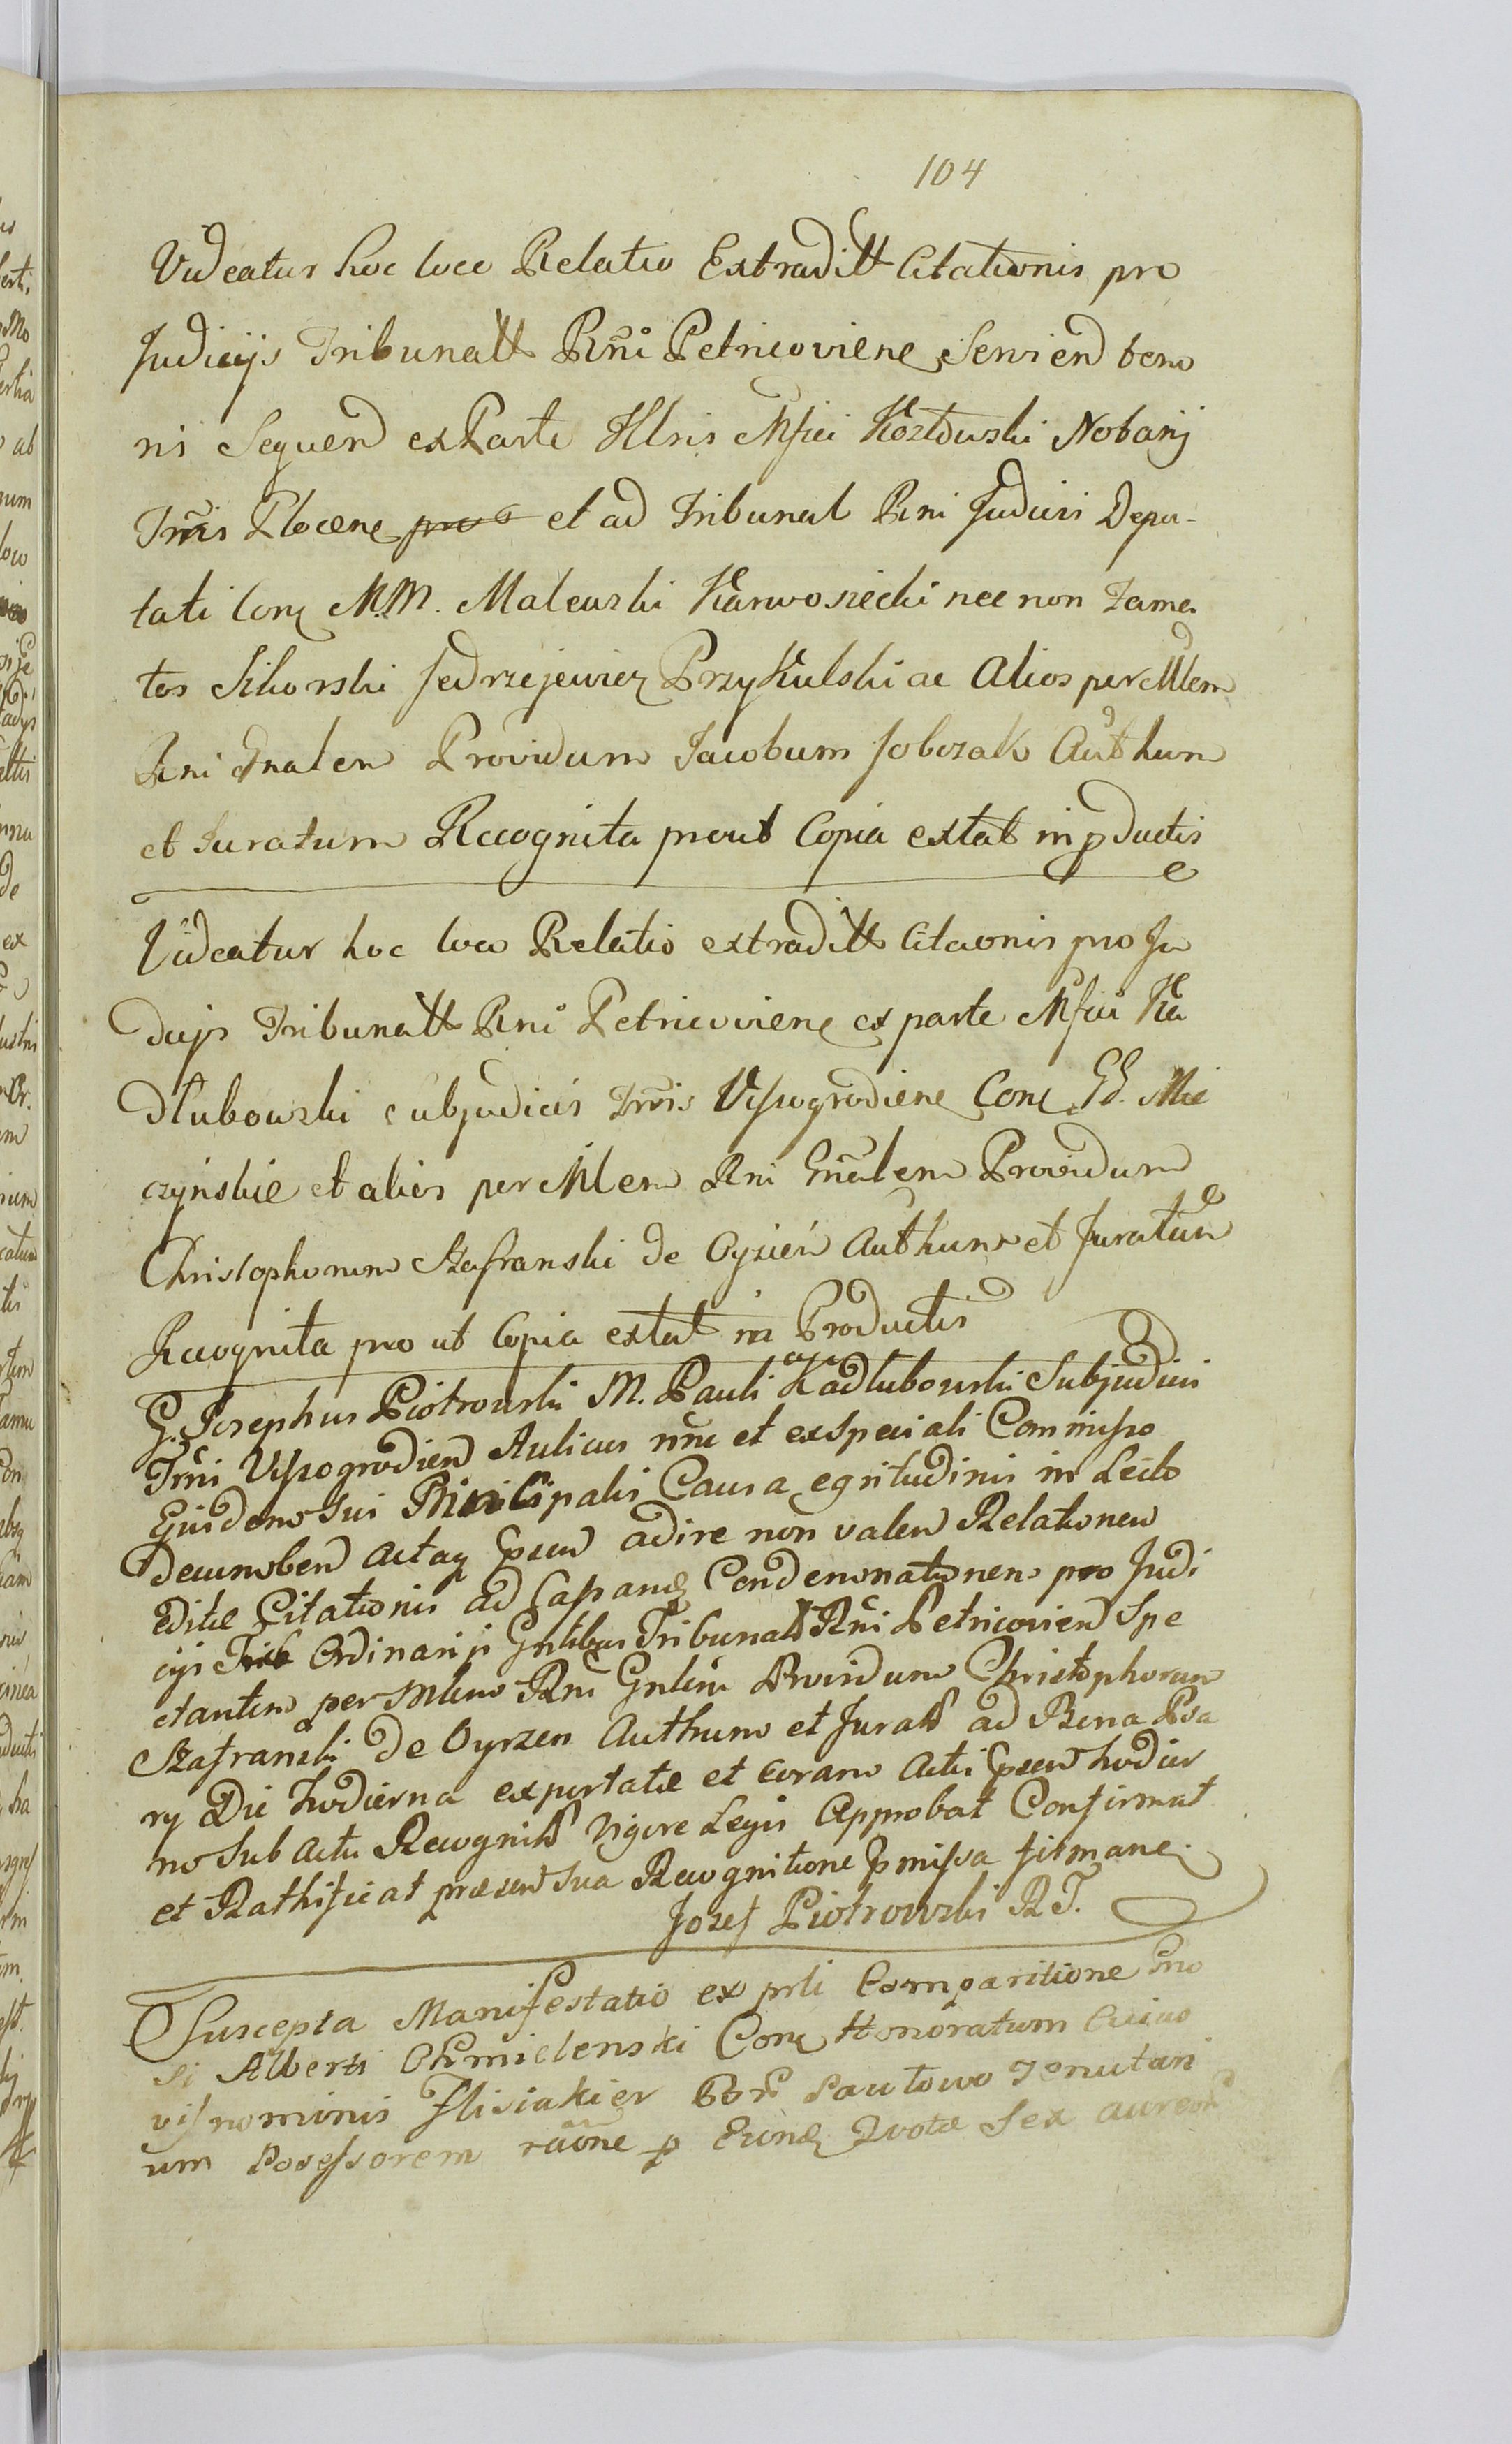 104
Videatur hoc loco Relatio Extraditt Citationis pro
Judicijs Tribunall Rni Petricoviene Serviend bono
ni Sequend ex Parte Illris Mfici Kozłowski Notarij
Trris Plocene et ad Tribunal Rni Judicii Depu-
tati Conq M.M. Malewski Karwosiecki nec non Fama
tos Sikorski Jedrzejewicz Przy Kulski ac Alios per Mlem
Rni Gnalem Providum Jacobum Jobczak Authum
et Juratum Recognita prout Copia extat in pductis
Videatur hoc loco Relatio extraditt Citaonis pro Ju
dicijs Tribunall Rni Petricoviene ex parte Mfici Ka
dłubowski Subjudicis Trris Vissogrodiene Conq GG. Mie
czyńskie et alios per Mlem Rni Gnalem Providum
Christophorum Szafranski de Oyrzeń Authum et Juratum
Recognita pro ut Copia extat in Productis
G. Josephus Piotrowski M. Pauli Kadłubowski Subjudici
Trrni Vissogrodien Aulicus nne et ex Speciali Commisso
Ejusdem Sui Principalis Causa egritudinis in Lecto
decumben Actaq psen adire non valen Relationem
editæ Citationis ad Cassand Condemnationem pro Judi
cijs Ordinarijs Gnlibus Tribunall Rni Petricovien Spe
ctantem per Mlem Rni Gnlem Providum Christophorum
Szafranski de Oyrzen Authum et Jurat ad Bona Psa
ry Die hodierna exportatæ et coram Actis psen hodier
no Sub Actu Recognit Vigore Legis Approbat Confirmat
et Rathificat præsen Sua Recognitione pmissa firmane.
Jozef Piotrowski RT.
Suscepta Manifestatio ex prli Comparitione Gno
si Alberti Chmielenski Conq Honoratum Cuius
vis nominis Flisiakier Bon Pautowo Tenutari
um Possessorem raone p Quotæ Sex aureor